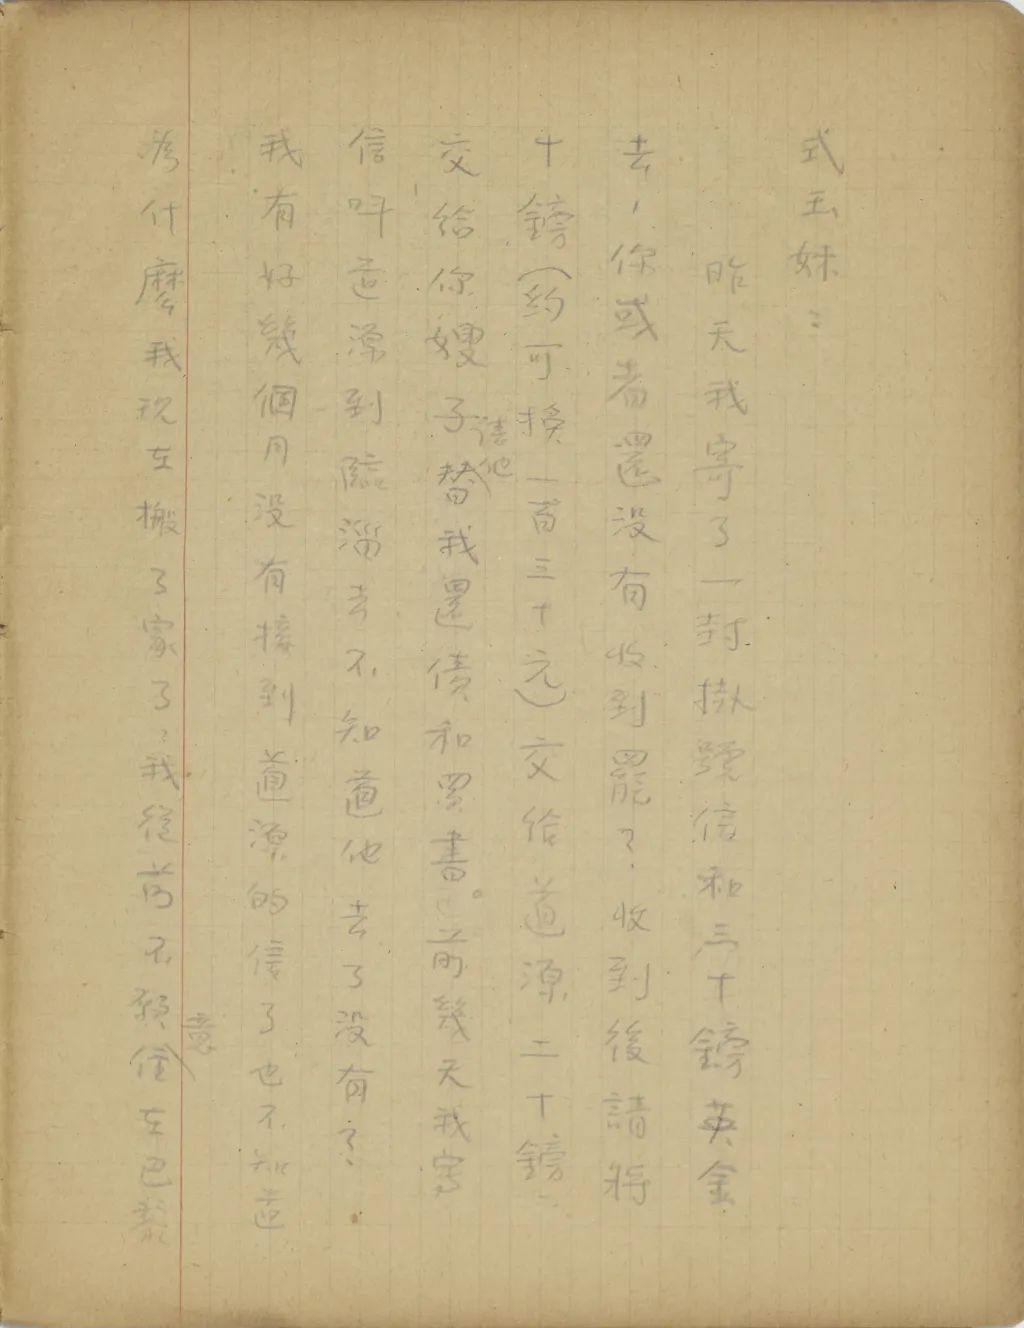 式玉妹：
昨天我寄了一封掛號信和三十鎊英金
去，你或者還没有收到罷？收到後請將
十鎊（約可換一百三十元）交給道源二十鎊
交給你嫂子請他替我還債和買書。前幾天我寫
信叫道源到臨淄去不知道他去了没有？
我有好幾個月没有接到道源的信了也不知道
為什麼我現在搬了家了，我從前不願意住在巴黎